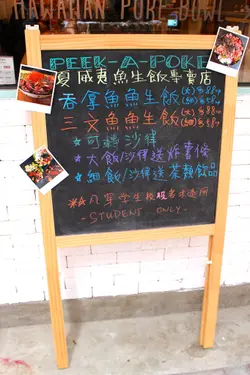 HAWAIIAN POKE BOWL
PEEK-A-POKE
夏威夷魚生飯專賣店
吞拿魚魚生飯(大)$88
(細)$58
三文魚魚生飯(大)$88
(細)$58
★可轉沙律
★大飯/沙律送炸薯條
★細飯/沙律送茶類飲品
-STUDENT ONLY-